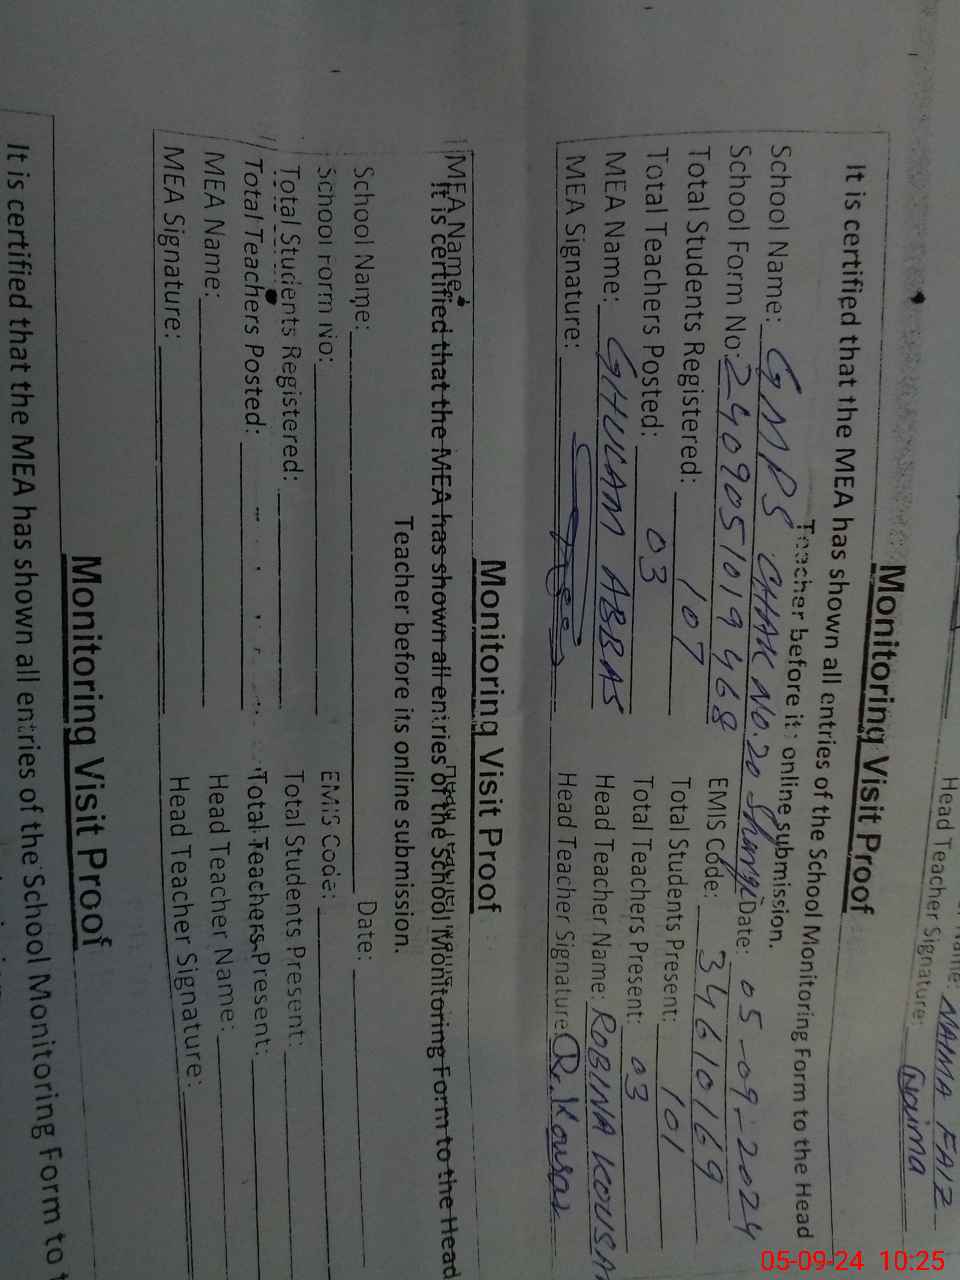 Name: NAIMA FAIZ
Head Teacher Signature: Naima
Monitoring Visit Proof
It is certified that the MEA has shown all entries of the School Monitoring Form to the Head
Teacher before its online submission.
School Name: GMPS CHAK NO.20 Date: 05-09-2024
School Form No: 2409051019468 EMIS Code: 34610169
Total Students Registered: 107 Total Students Present: 101
Total Teachers Posted: 03 Total Teachers Present: 03
MEA Name: GHULAM ABBAS Head Teacher Name: ROBINA KOUSA
MEA Signature: Head Teacher Signature: R. Kousar
Monitoring Visit Proof
MEA Name:
It is certified that the MEA has shown all entries of the School Monitoring Form to the Head
Teacher before its online submission.
School Name: Date:
School Form No: EMIS Code:
Total Students Registered: Total Students Present:
Total Teachers Posted: Total Teachers Present:
MEA Name: Head Teacher Name:
MEA Signature: Head Teacher Signature:
Monitoring Visit Proof
It is certified that the MEA has shown all entries of the School Monitoring Form to t
05-09-24 10:25